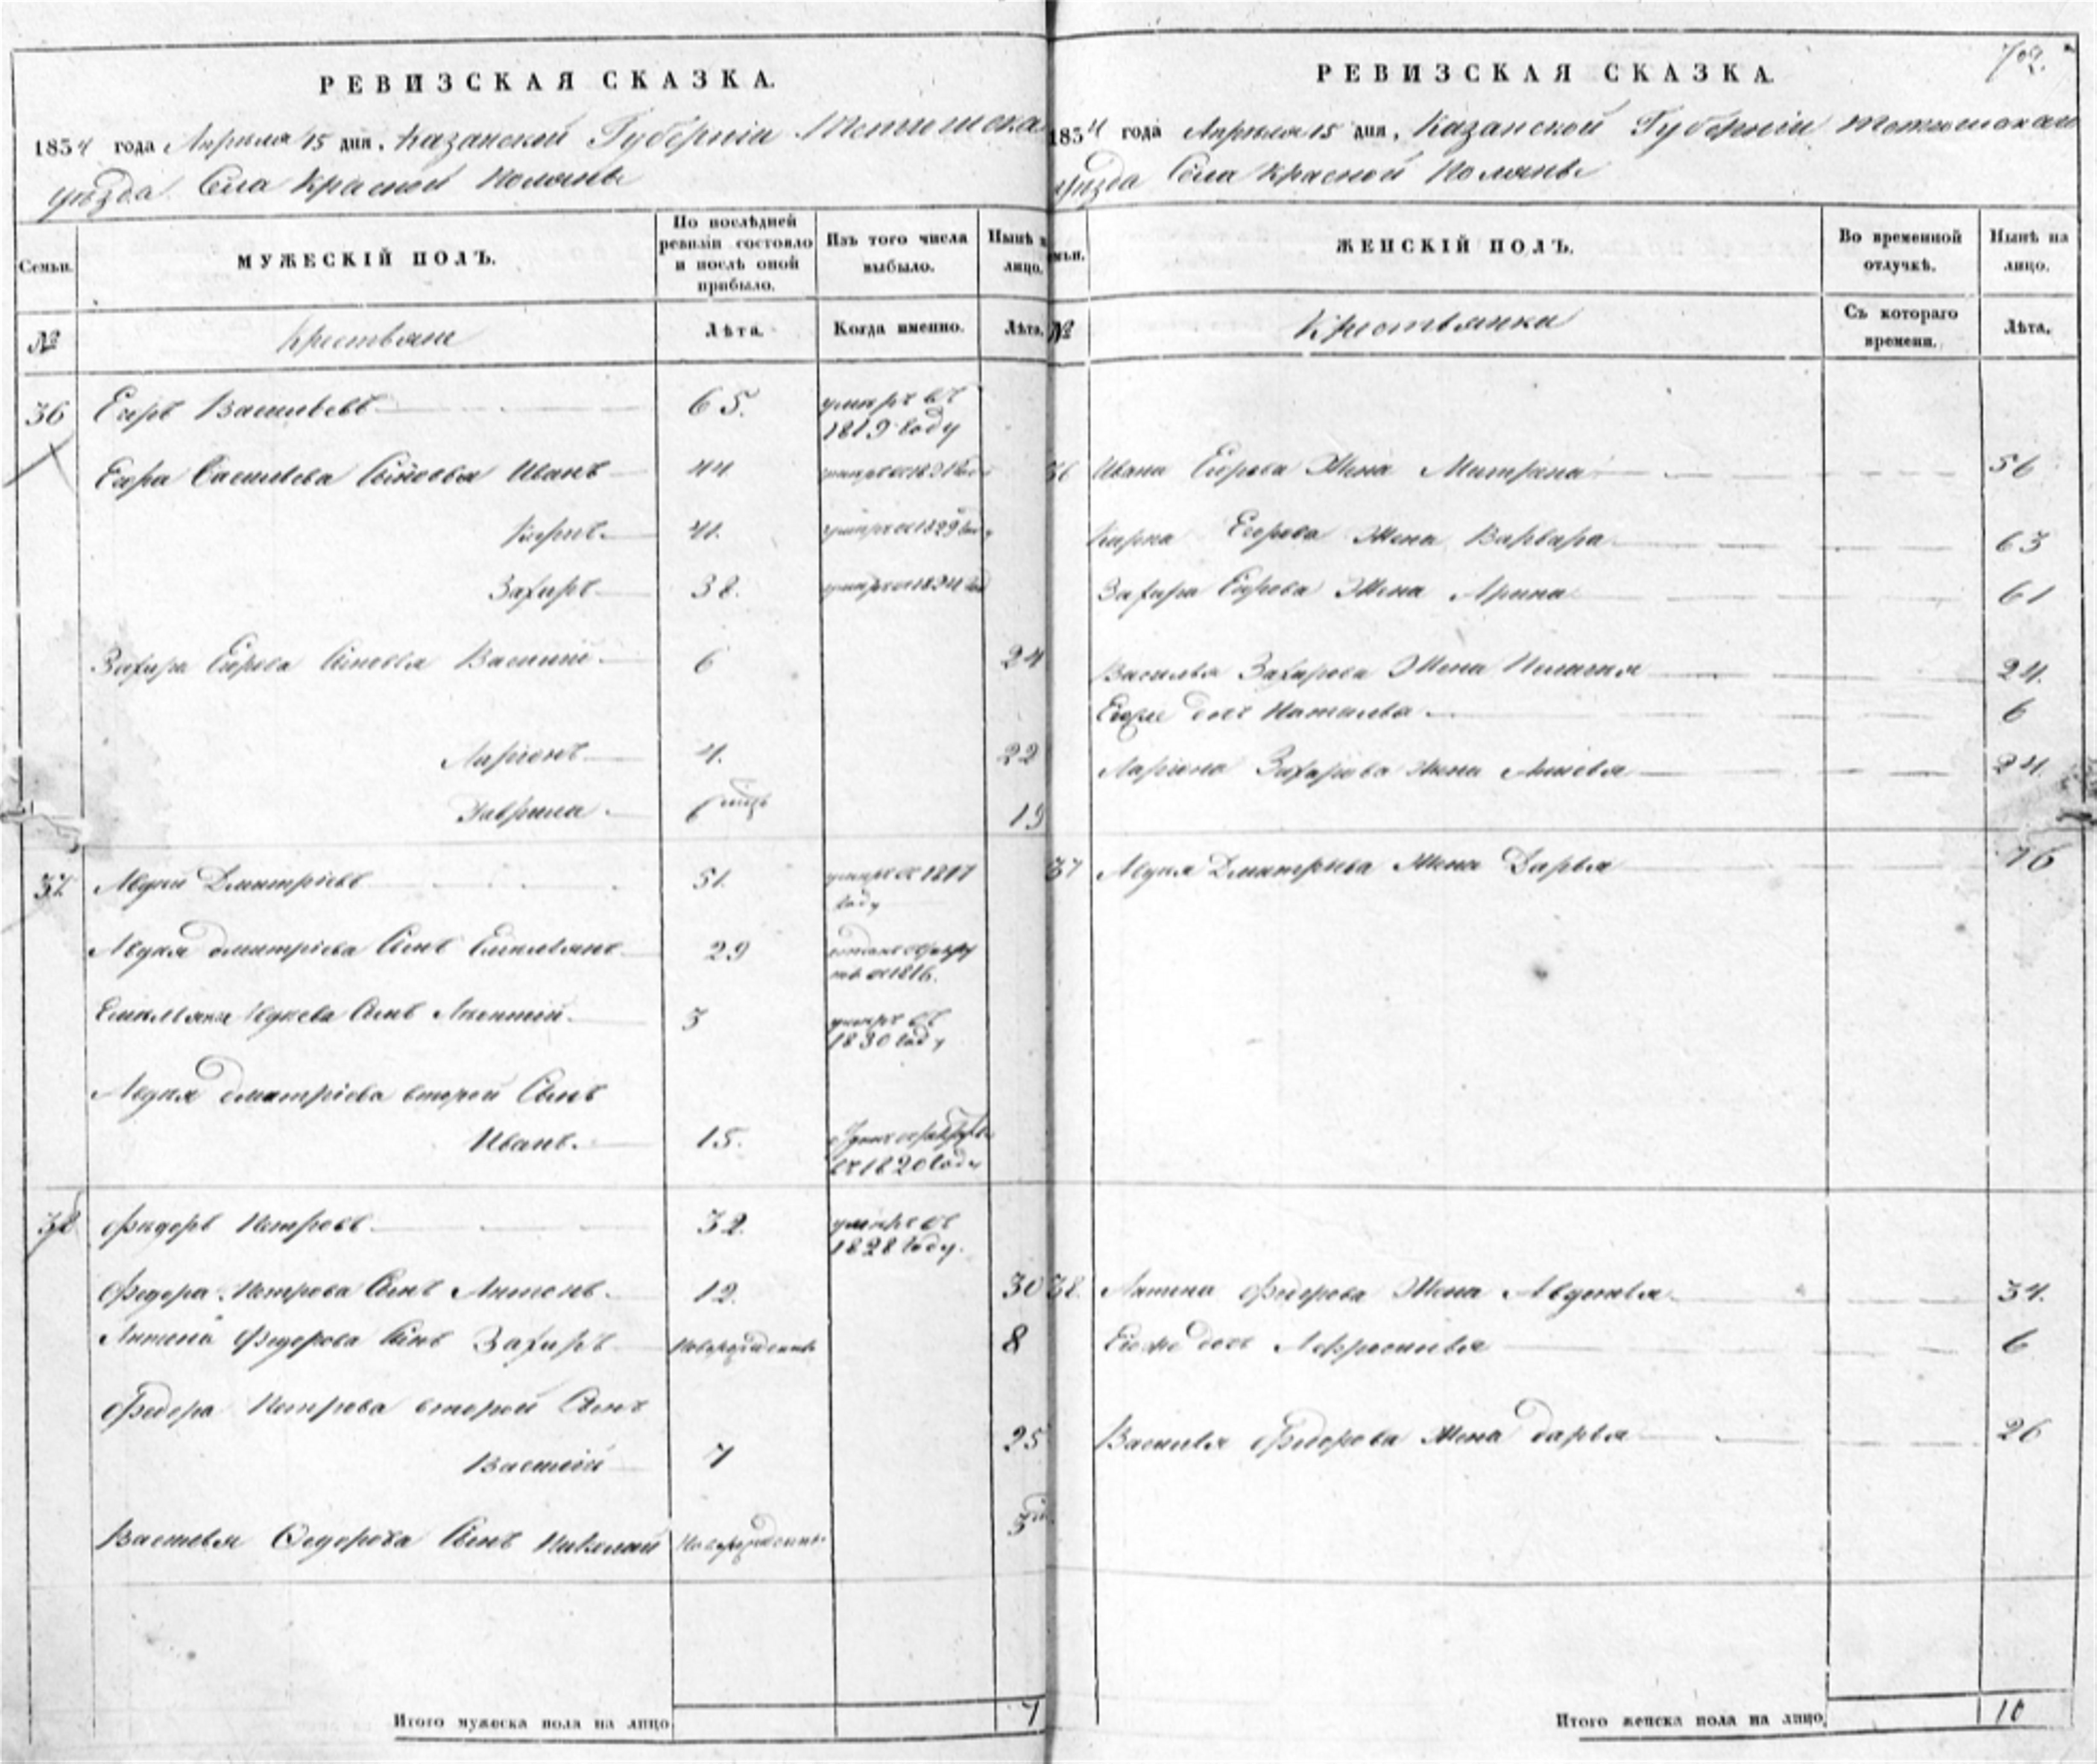 РЕВИЗСКАЯ СКАЗКА.
1834 года Апреля 15 дня, Казанской Губерніи
уѣзда Села Красной Поляны
Семьи. МУЖЕСКІЙ ПОЛЪ. По послѣдней ревизіи состояло и послѣ оной прибыло. Изъ того числа выбыло. Нынѣ на лицо.
№ Крестьяне Лѣта. Когда именно. Лѣта.
36 Егоръ Васильевъ 65. умеръ въ
1819 году
Егора Васильева Сыновья Иванъ 44
Карпъ 41.
Захаръ 38.
Захара Егорова Сыновья Василий 6 24
Ларіонъ 4. 22
Гаврила 6 19
37 Авдей Дмитріевъ 51. умеръ въ 1817
году
Авдея Дмитріева Сынъ Емельянъ 29
1816.
Емельяна Сынъ 3 умеръ въ
1830 году
Авдея Дмитріева второй Сынъ
Иванъ. 15.
въ 1820 году
38 Федоръ Петровъ 32. умеръ въ
1828 году.
Федора Петрова Сынъ Антонъ. 12. 30
Антона Федорова Сынъ Захаръ 8
Федора Петрова второй Сынъ
Василій 7 25
Василья Федорова Сынъ Николай
Итого мужеска пола на лицо 7
РЕВИЗСКАЯ СКАЗКА.
1834 года Апреля 15 дня, Казанской Губерніи
уѣзда Села Красной Поляны
Семьи. ЖЕНСКІЙ ПОЛЪ. Во временной отлучкѣ. Нынѣ на лицо.
№ Крестьянки Съ котораго времени. Лѣта.
36 Ивана Егорова Жена 56
Карпа Егорова Жена Варвара 63
Захара Егорова Жена Арина 61
Василья Захарова Жена 24.
дочь Наталья 6
Ларіона Захарова Жена 24.
37 Авдея Дмитріева Жена Дарья 76
38. Антона Федорова Жена Авдотья 34.
дочь 6
Василья Федорова Жена Дарья 26
Итого женска пола на лицо, 10